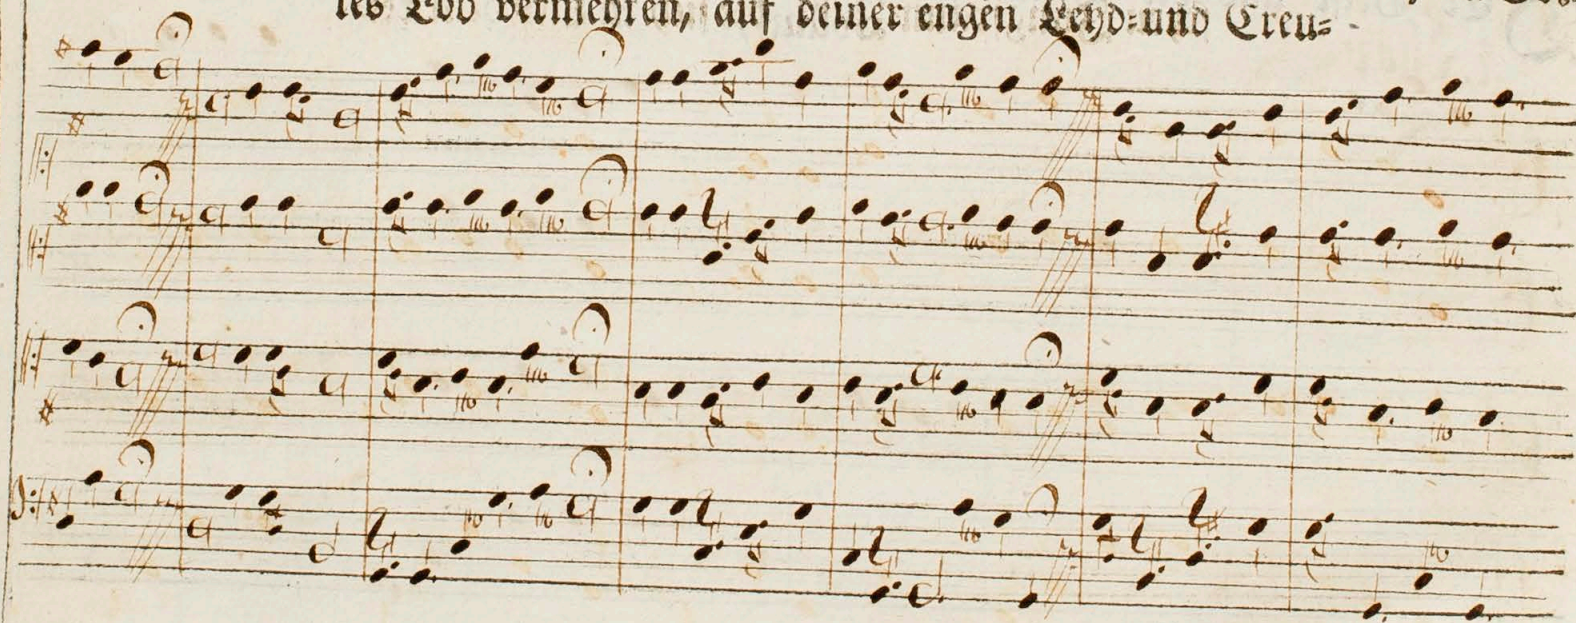 Lob vermehren, auf deiner engen Leyd-und Creu-